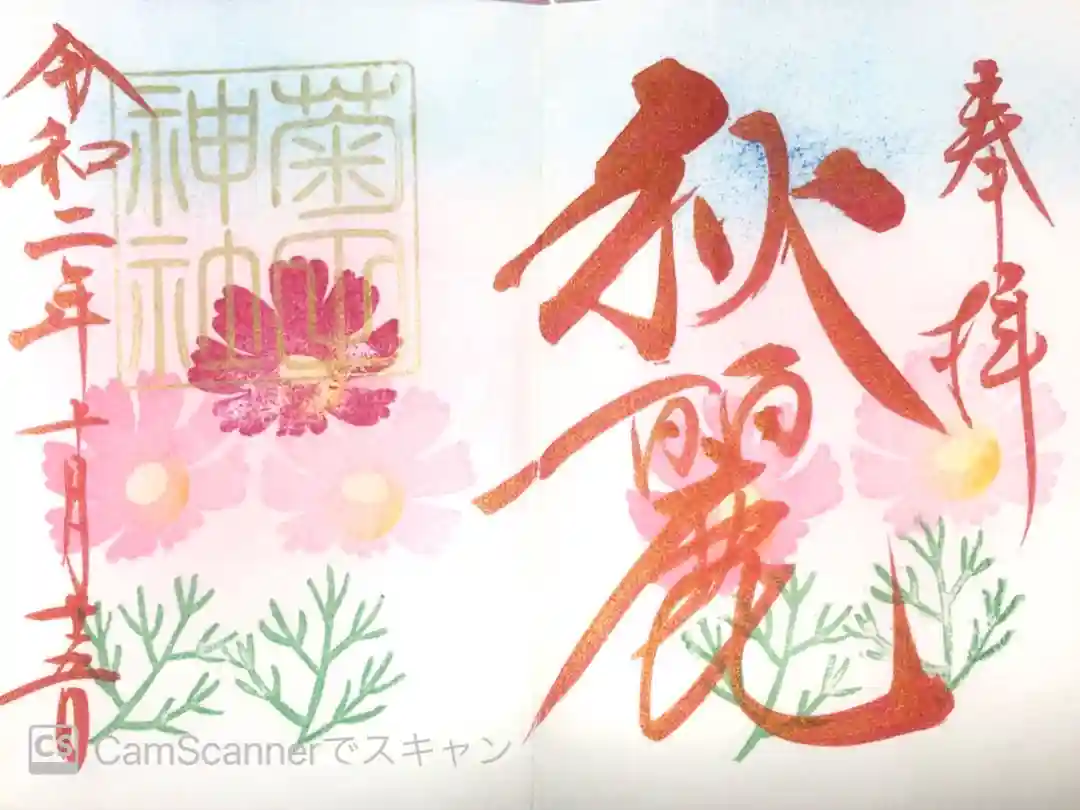 奉拝
秋麗
菊田
神社
令和二年十月十五日
CamScannerでスキャン